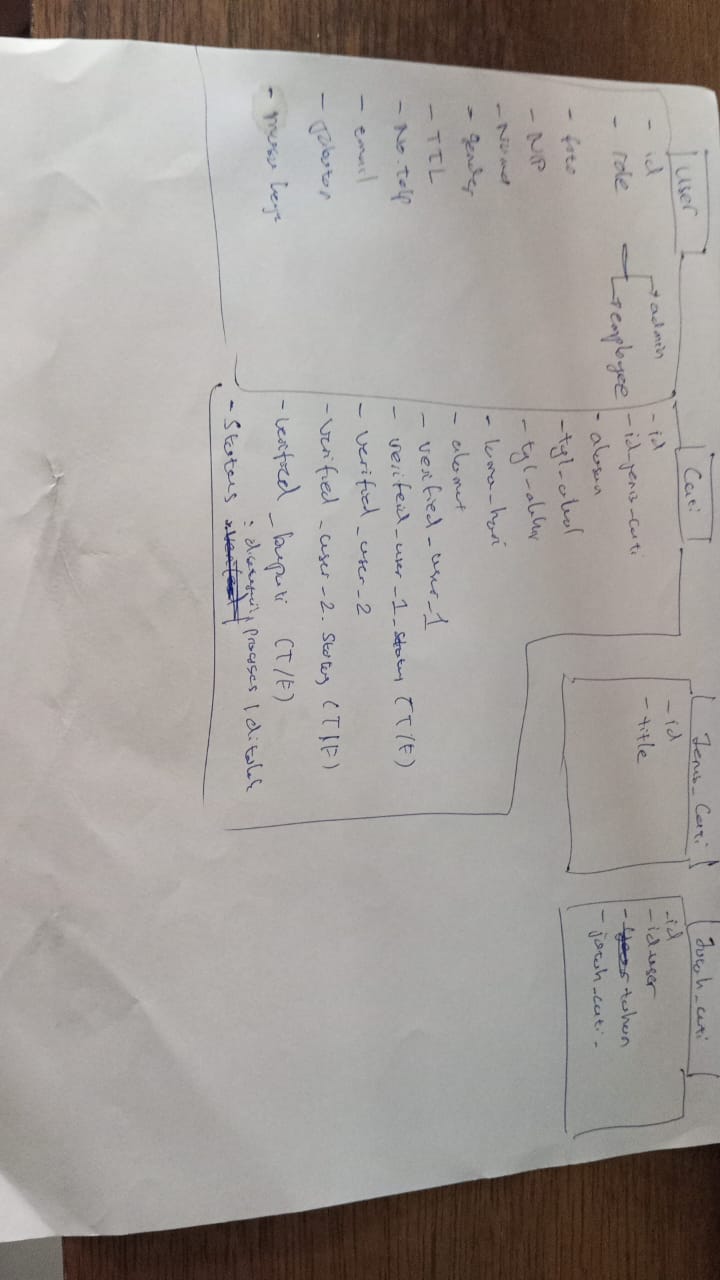 User
- id
- role
admin
employee
- foto
- NIP
- Nama
- gender
- TTL
- No. telp
- email
- Jabatan
- masa kerja
Cuti
- id
- id_jenis_cuti
- alasan
- tgl_awal
- tgl_akhir
- lama_hari
- alamat
- verified_user_1
- verifeid_user_1_status (T/F)
- verified_user_2
- verified_user_2. status (T/F)
- verified_bupati (T/F)
- Status : disetujui, processes / ditolak
Jenis_Cuti
- id
- title
Jatah_cuti
- id
- id_user
- tahun
- jatah_cuti